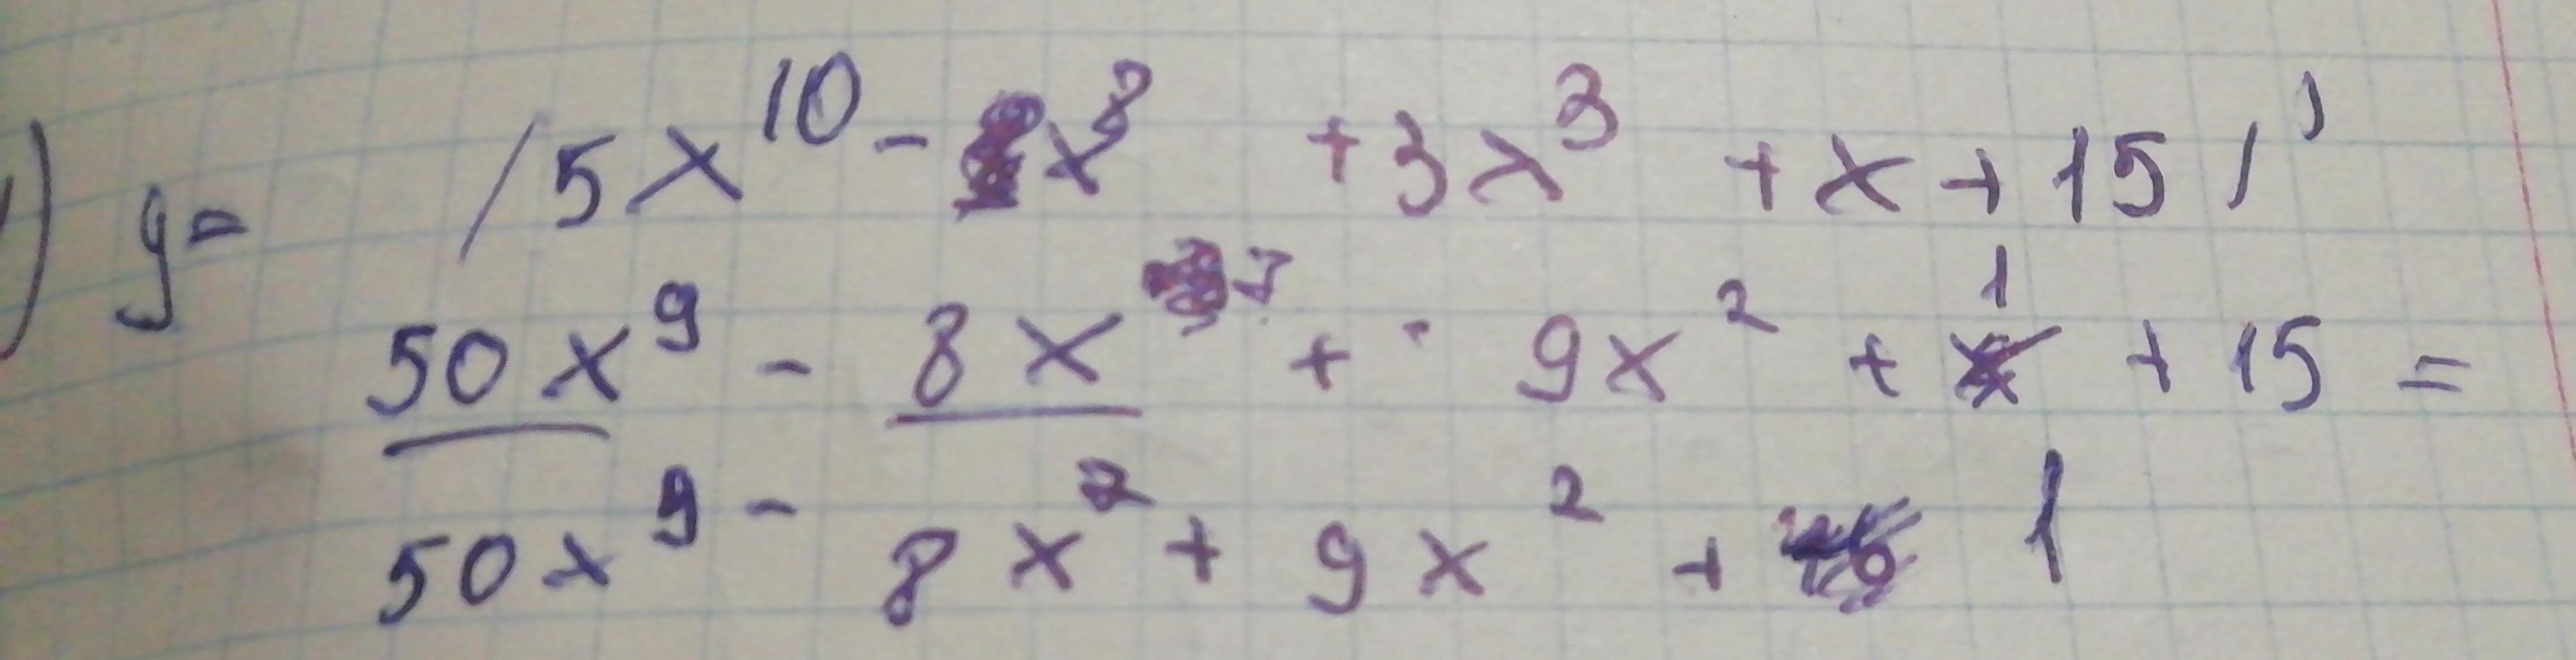 1) y = (5x¹⁰ - x⁸ + 3x³ + x + 15)'
50x⁹ - 8x⁷ + 9x² + 1 + 15 =
50x⁹ - 8x² + 9x² + 1